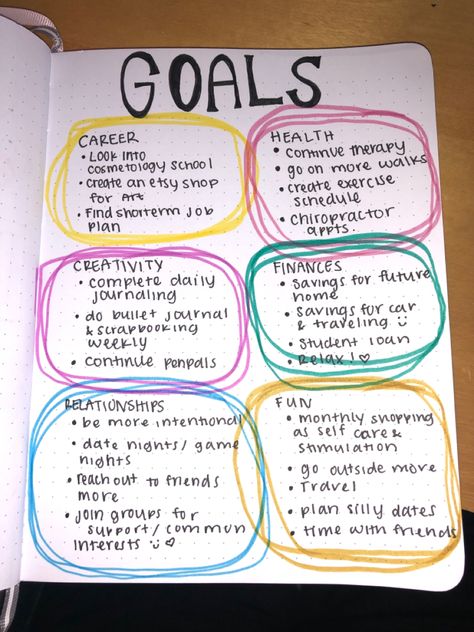 GOALS
CAREER
• LOOK INTO
cosmetology school
• create an etsy shop
for ART
• Find shorterm job
plan
HEALTH
• continue therapy
• go on more walks
• create exercise
schedule
• chiropractor
appts.
CREATIVITY
• complete daily
journaling
• do bullet journal
& scrapbooking
weekly
• continue penpals
FINANCES
• savings for future
home
• savings for car
& traveling
• student loan
• Relax!
RELATIONSHIPS
• be more intentional
• date nights/game
nights
• reach out to friends
more
• join groups for
support/common
interests
FUN
• monthly shopping
as self care &
stimulation
• go outside more
• Travel
• plan silly dates
• time with friends